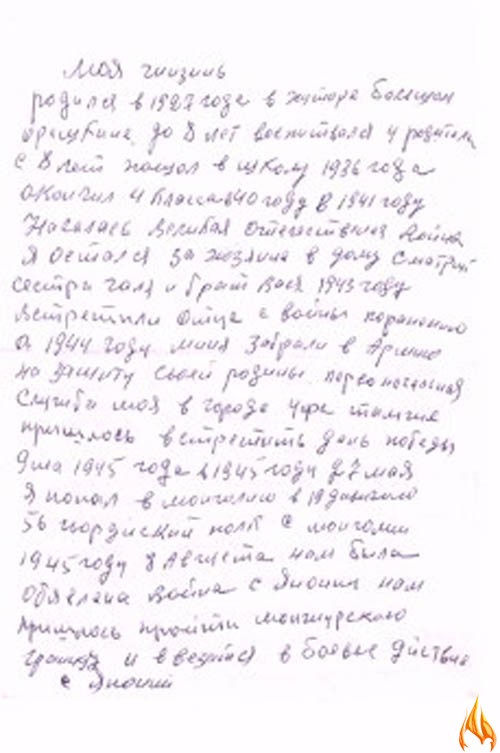 Моя гиизнь
родился в 1927 года в хуторе
до 8 лет воспитвался у родители
с 8 лет пошол в школу 1936 года
окончил 4 класса 1940 году в 1941 году
Началась великая отечествиная война
Я остался за хозяина в дому смотрит
сестра галя и брат вася 1943 году
встретили отца с войны пораненого
а 1944 году миня забрали в Армию
на защиту своей родины первоначальная
служба моя в городе Уфе тамгие
пришлось встретить день победы
9 мая 1945 года в 1945 году 27 мая
я попал в монголию в
56 гвордиский полк с монголии
1945 году 8 Августа нам была
обявлена война с Японии нам
пришлось пройти
границу и в ведится в боевые дйствие
с Японий